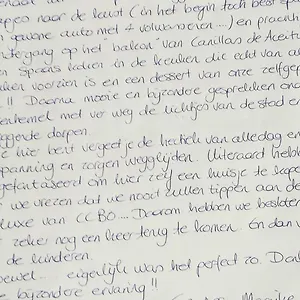 naar
eppen naar de kant (in het begin toch best spa
n gewone auto met 4 volwassenen...) en prachti
ondergang op het "balkon" van Canillas de Aceitu
en Spaans koken in de keuken die echt van al
akken voorzien is en een dessert van onze zelfgep
!! Daarna mooie en bijzondere gesprekken ond
renhemel met ver weg de lichtjes van de stad e
iggende dorpen.
e hier bent vergeet je de hectiek van alledag en
spanning en zorgen wegglijden. Uiteraard hebb
gefantaseerd om hier zelf een huisje te kope
we vrezen dat we nooit zullen tippen aan de
luxe van CCBO... Daarom hebben we besloten
zeker nog een keer terug te komen. En dan
de kinderen.
oewel... eigenlijk was het perfect zo. Dank
e bijzondere ervaring!!